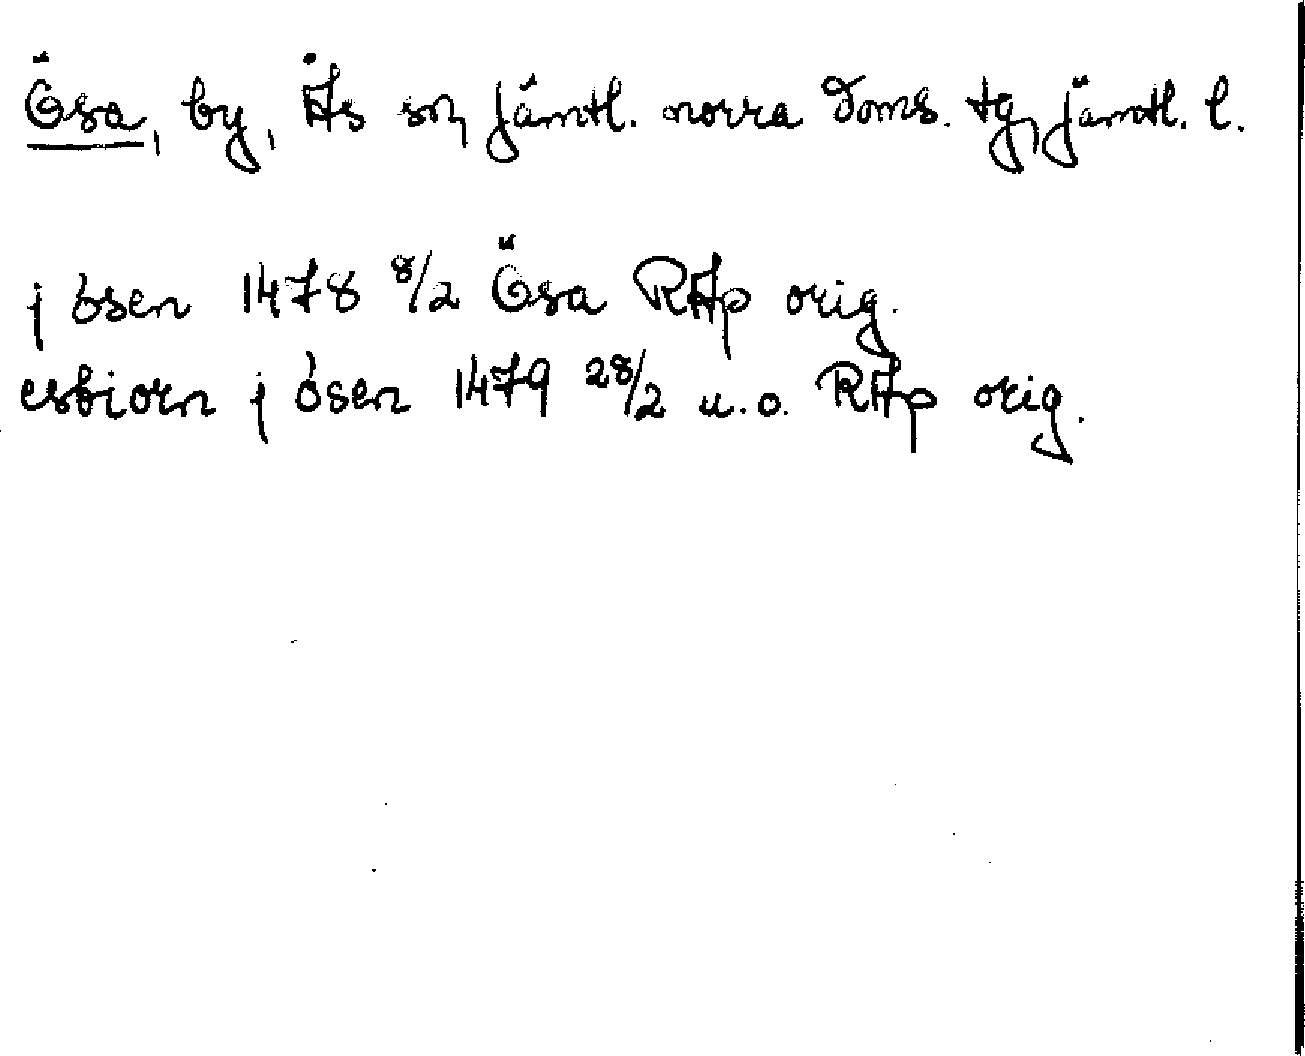 Ösa, by, Ås sn, Jämtl. norra doms. tg, Jämtl. l.
j ósen 1478 8/2 Ösa RAp orig.
esbiorn j ósen 1479 28/2 u.o. RAp orig.